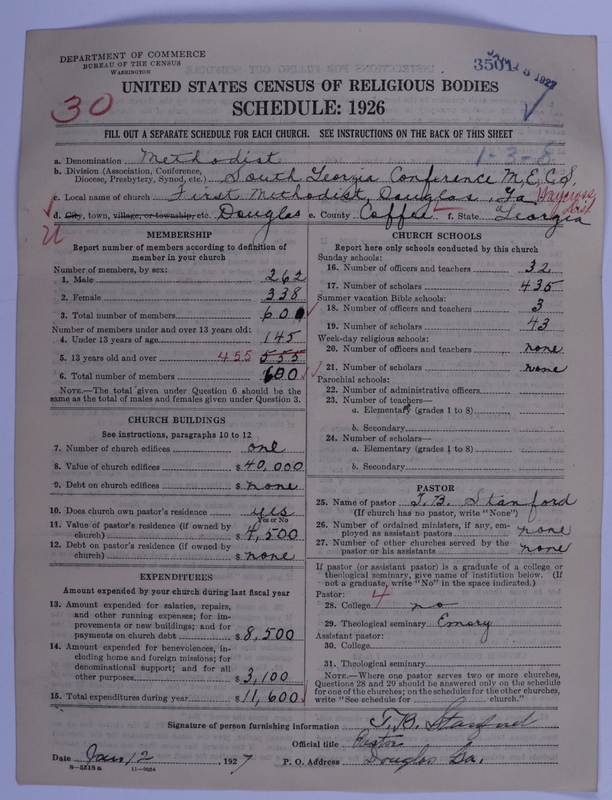 DEPARTMENT OF COMMERCE
BUREAU OF THE CENSUS
WASHINGTON
30
UNITED STATES CENSUS OF RELIGIOUS BODIES
SCHEDULE: 1926
FILL OUT A SEPARATE SCHEDULE FOR EACH CHURCH. SEE INSTRUCTIONS ON THE BACK OF THIS SHEET
1-3-8
a. Denomination Methodist
b. Division (Association, Conference, Diocese, Presbytery, Synod, etc.) South Georgia Conference M.E.C.S.
c. Local name of church First Methodist, Douglas, Ga Waycross Dist.
d. City, town, village, or township, etc. Douglas e. County Coffee f. State Georgia
MEMBERSHIP
Report number of members according to definition of
member in your church
Number of members, by sex:
1. Male 262
2. Female 338
3. Total number of members 600
Number of members under and over 13 years old:
4. Under 13 years of age 145
5. 13 years old and over 455 555
6. Total number of members 600
NOTE.—The total given under Question 6 should be the
same as the total of males and females given under Question 3.
CHURCH BUILDINGS
See instructions, paragraphs 10 to 12
7. Number of church edifices one
8. Value of church edifices $ 40,000
9. Debt on church edifices $ none
10. Does church own pastor's residence yes
Yes or No
11. Value of pastor's residence (if owned by
church) $ 4,500
12. Debt on pastor's residence (if owned by
church) $ none
EXPENDITURES
Amount expended by your church during last fiscal year
13. Amount expended for salaries, repairs,
and other running expenses; for im-
provements or new buildings; and for
payments on church debt $ 8,500
14. Amount expended for benevolences, in-
cluding home and foreign missions; for
denominational support; and for all
other purposes $ 3,100
15. Total expenditures during year $ 11,600
CHURCH SCHOOLS
Report here only schools conducted by this church
Sunday schools:
16. Number of officers and teachers 32
17. Number of scholars 435
Summer vacation Bible schools:
18. Number of officers and teachers 3
19. Number of scholars 43
Week-day religious schools:
20. Number of officers and teachers none
21. Number of scholars none
Parochial schools:
22. Number of administrative officers
23. Number of teachers—
a. Elementary (grades 1 to 8)
b. Secondary
24. Number of scholars—
a. Elementary (grades 1 to 8)
b. Secondary
PASTOR
25. Name of pastor J.B. Stanford
(If church has no pastor, write "None")
26. Number of ordained ministers, if any, em-
ployed as assistant pastors none
27. Number of other churches served by the
pastor or his assistants none
If pastor (or assistant pastor) is a graduate of a college or
theological seminary, give name of institution below. (If
not a graduate, write "No" in the space indicated.)
Pastor: 4
28. College no
29. Theological seminary Emory
Assistant pastor:
30. College
31. Theological seminary
NOTE.—Where one pastor serves two or more churches,
Questions 28 and 29 should be answered only on the schedule
for one of the churches; on the schedules for the other churches,
write "See schedule for church."
Signature of person furnishing information J.B. Stanford
Official title Pastor
Date Jan 12, 1927 P. O. Address Douglas Ga.
8—5518 a 11—9024